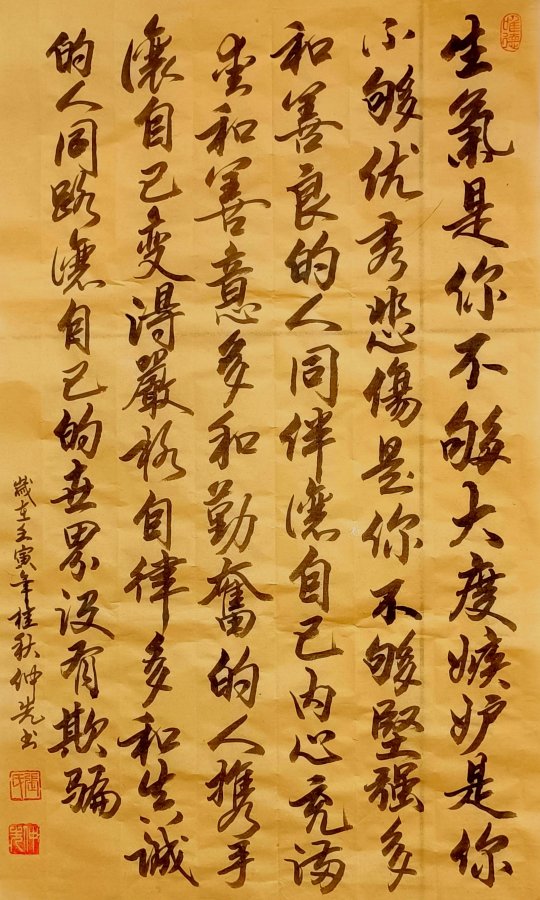 生氣是你不够大度嫉妒是你
不够优秀悲傷是你不够堅强多
和善良的人同伴讓自己内心充满
爱和善意多和勤奮的人携手
讓自己变得嚴格自律多和真诚
的人同路讓自己的世界没有欺骗
歲在壬寅年桂秋仲先书